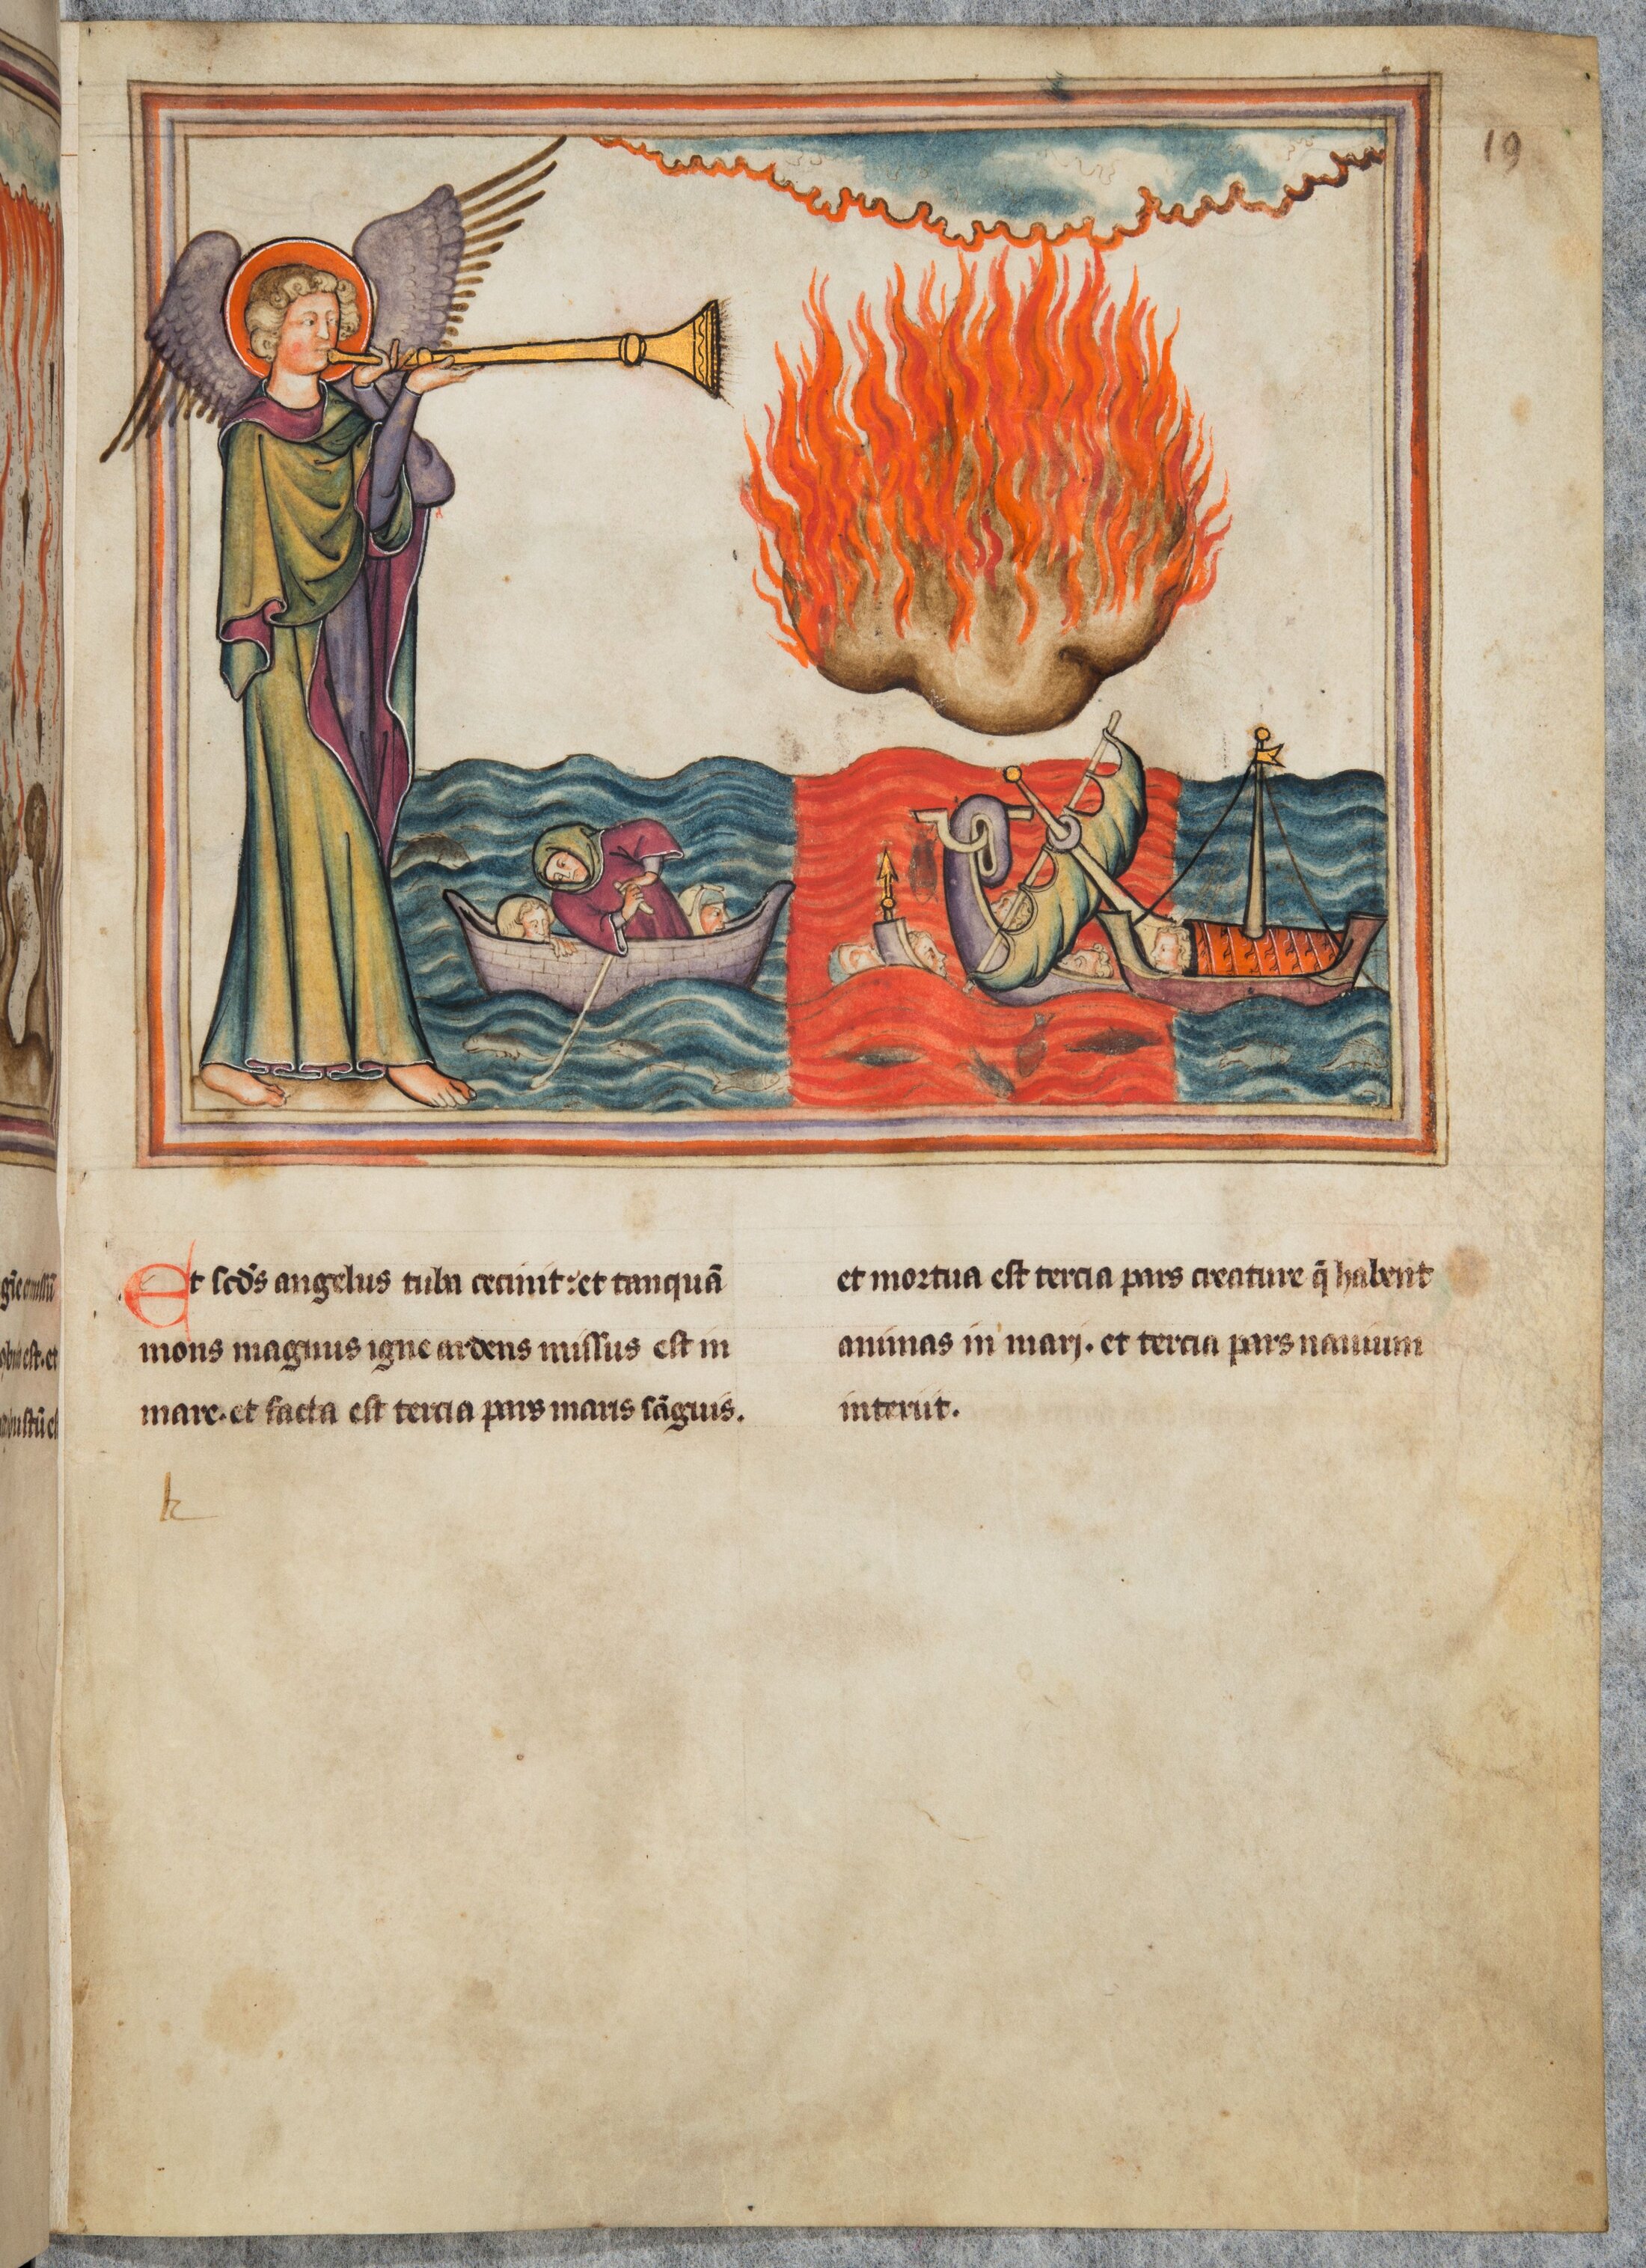 19
Et scd̄s angelus tuba cecinit: et tanquā
mons magnus igne ardens missus est in
mare. et facta est tercia pars maris sāguis.
et mortua est tercia pars creature q̄ habent
animas in mari. et tercia pars nauium
interiit.